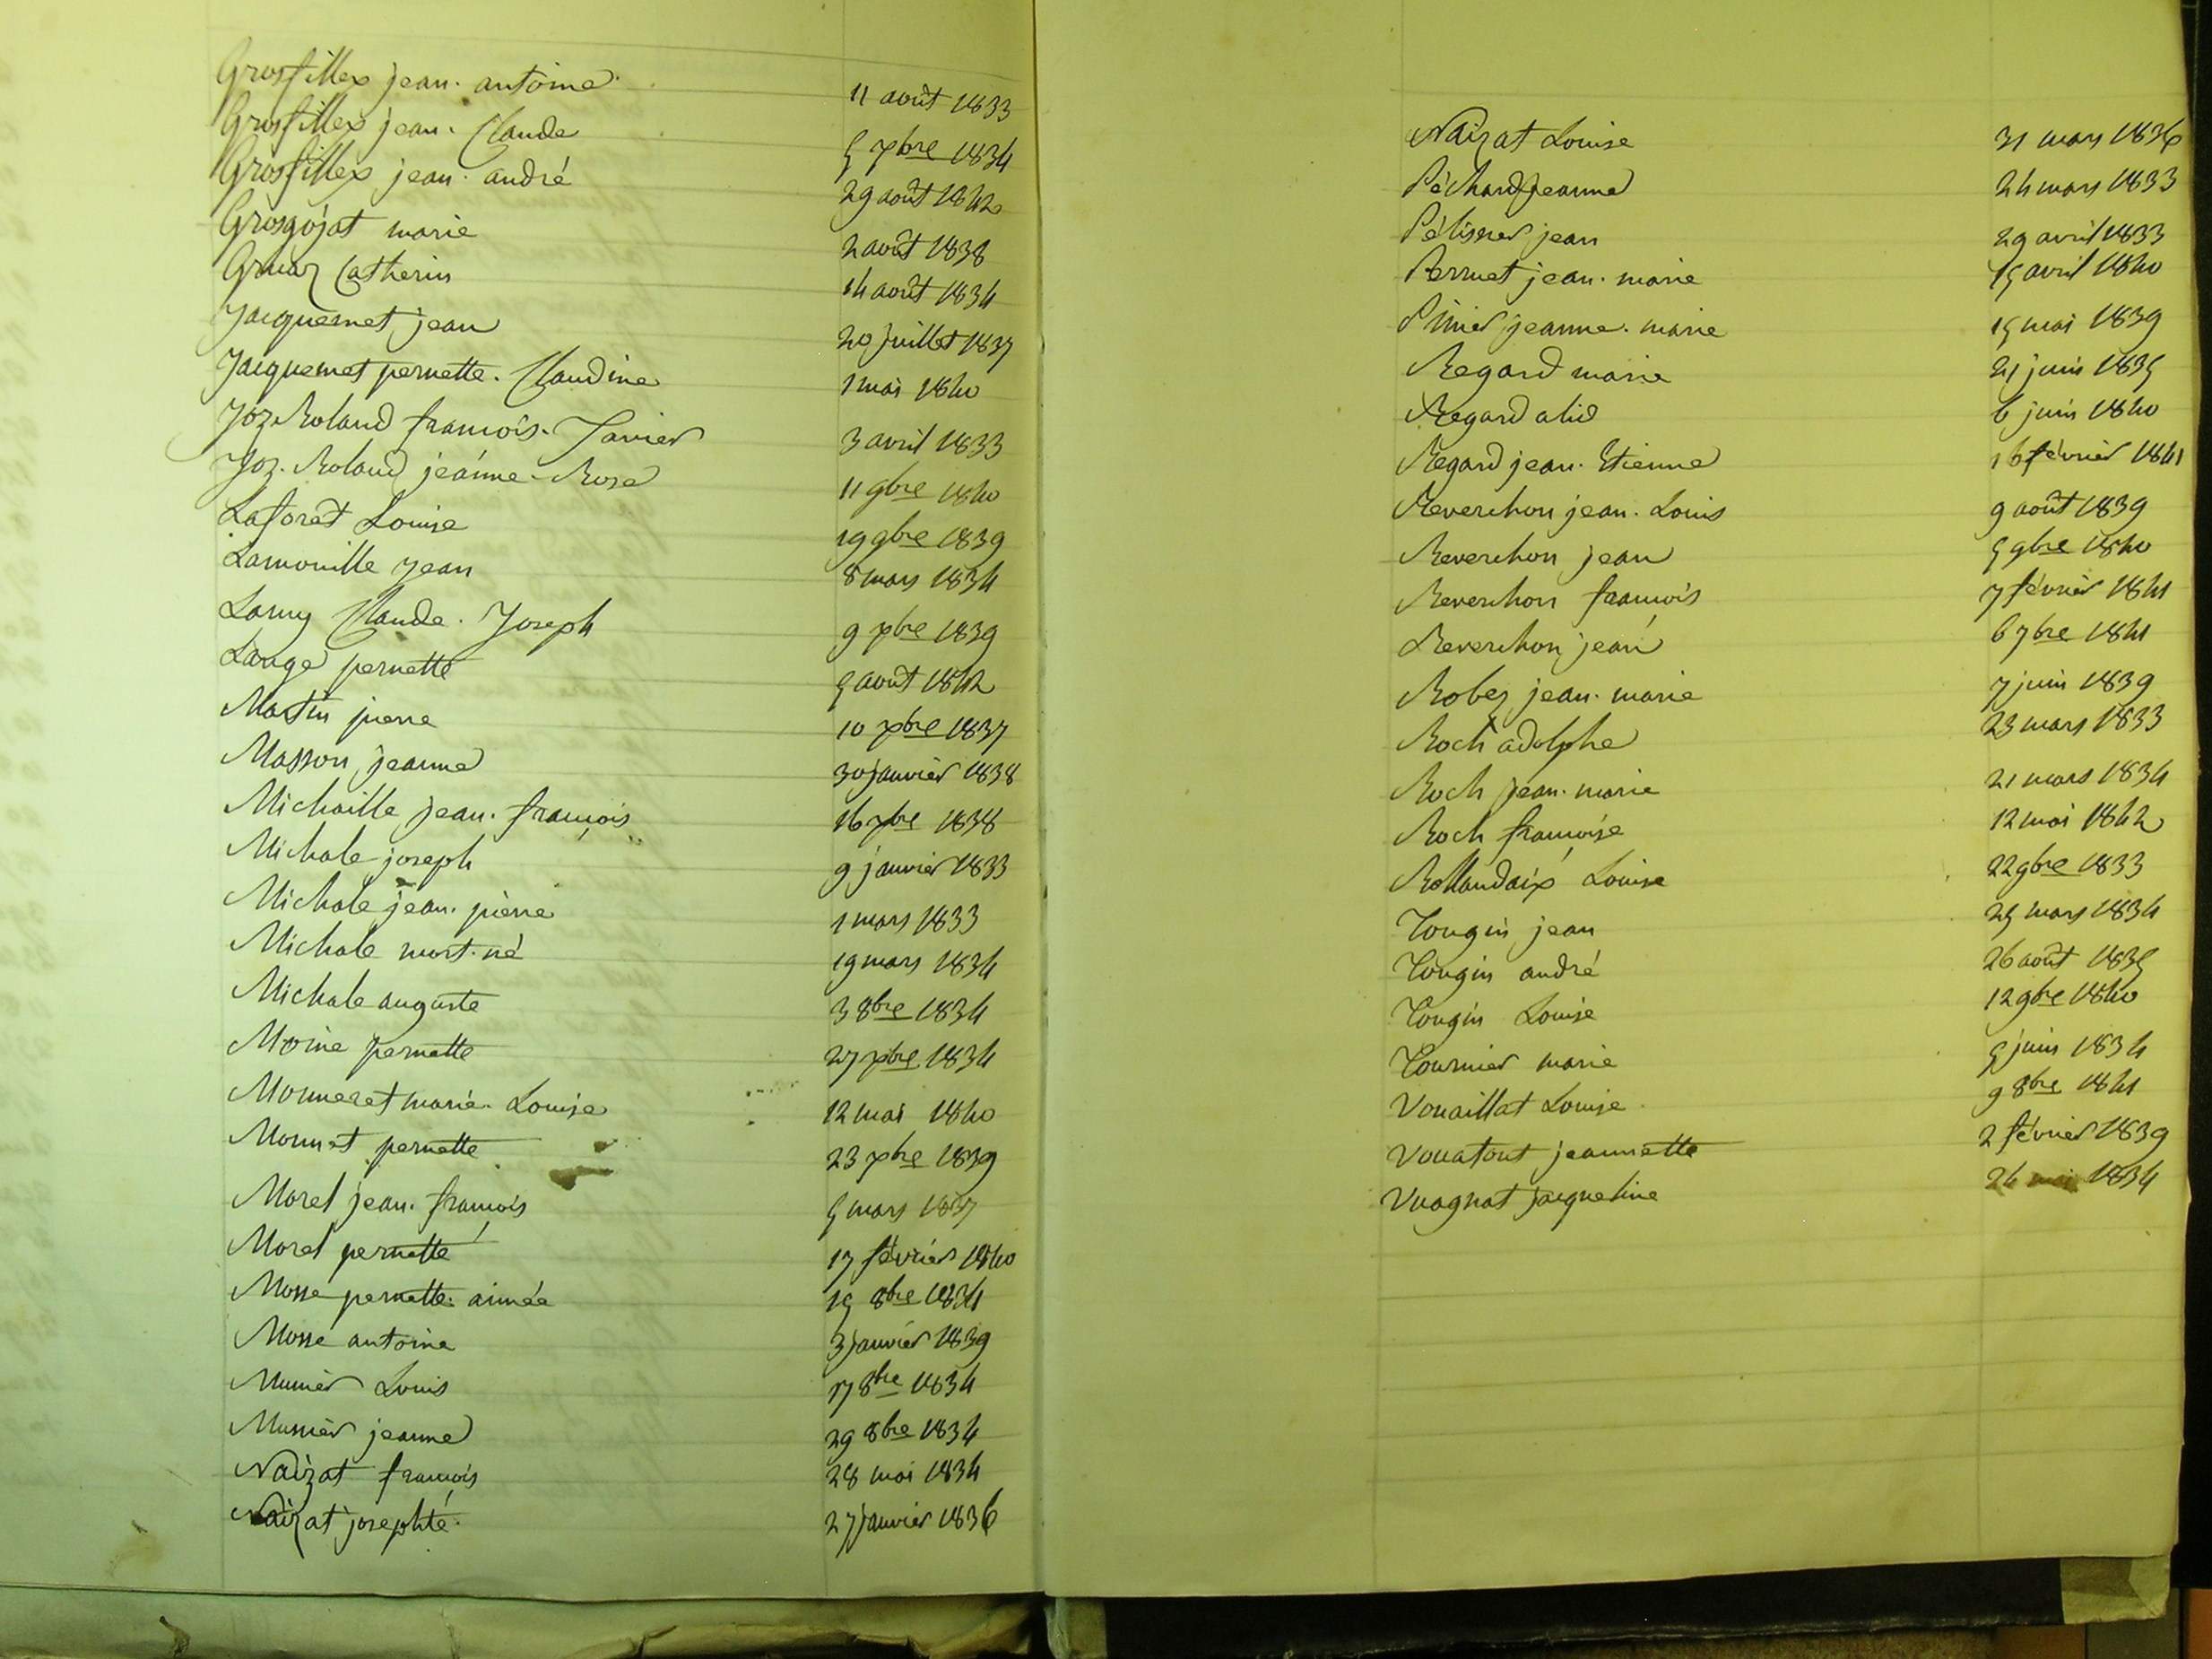 Grosfillex jean. antoine 11 août 1833
Grosfillex jean. Claude 5 7bre 1834
Grosfillex jean. andré 29 août 1842
Grosgojat marie 2 août 1838
Gruaz Catherin 14 août 1834
Jacquemet jean 20 juillet 1837
Jacquemet pernette. Claudine 1 mai 1840
Joz-Roland françois. Xavier 3 avril 1833
Joz. Roland jeanne-Rose 11 9bre 1840
Laforêt Louise 19 9bre 1839
Lamouille jean 8 mars 1834
Lamy Claude. Joseph 9 xbre 1839
Lange pernette 5 août 1842
Martin pierre 10 xbre 1837
Masson jeanne 30 janvier 1838
Michaille jean. françois 16 xbre 1838
Michale joseph 9 janvier 1833
Michale jean. pierre 1 mars 1833
Michale mort. né 19 mars 1834
Michale auguste 3 8bre 1834
Moine pernette 27 xbre 1834
Monneret marie. Louise 12 mai 1840
Monnet pernette 23 xbre 1839
Morel jean. françois 5 mars 1837
Morel pernette 17 février 1840
Mosse pernette. aimée 15 8bre
Mosse antoine 3 janvier 1839
Munier Louis 17 8bre 1834
Munier jeanne 29 8bre 1834
Naizat françois 28 mai 1834
Naizat josephte 27 janvier 1836
Naizat Louise 31 mars 1836
Péchard jeanne 24 mars 1833
Pélissier jean 29 avril 1833
Pernet jean. marie 15 avril 1840
jeanne. marie 15 mai 1839
Regard marie 21 juin 1835
Regard alid 6 juin 1840
Regard jean. Etienne 16 février 1841
Reverchon jean. Louis 9 août 1839
Reverchon jean 5 9bre 1840
Reverchon françois 7 février 1841
Reverchon jean 6 7bre 1841
Robez jean. marie 7 juin 1839
Roch adolphe 23 mars 1833
Roch jean. marie 21 mars 1834
Roch françoise 12 mai 1842
Rollandaix Louise 22 9bre 1833
Tougin jean 25 mars 1834
Tougin andré 26 août 1835
Tougin Louise 12 9bre 1840
Tournier marie 5 juin 1834
Vouaillat Louise 9 8bre 1841
Vouatout jeannette 2 février 1839
Vuagnat jacqueline 24 1834